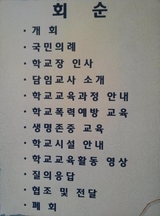 회 순
· 개 회
· 국민의례
· 학교장 인사
· 담임교사 소개
· 학교교육과정 안내
· 학교폭력예방 교육
· 생명존중 교육
· 학교시설 안내
· 학교교육활동 영상
· 질의응답
· 협조 및 전달
· 폐 회